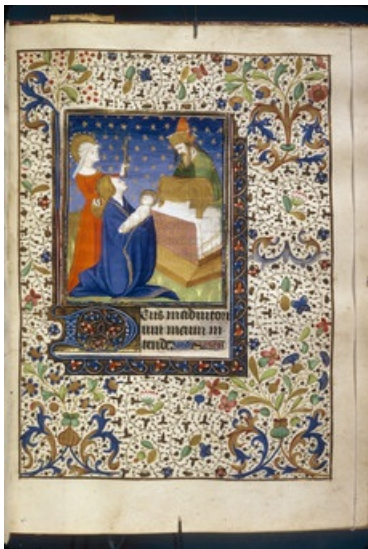 Deus in adiutori
um meum in
tende